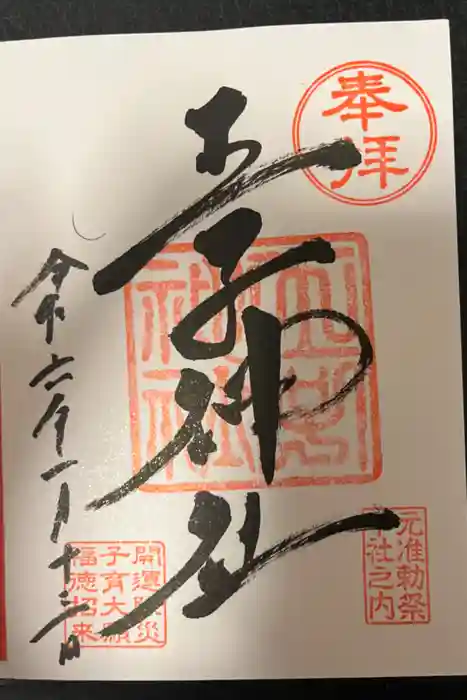 奉拝
王子神社
王子
神社
元准勅祭
十社之内
開運除災
子育大願
福徳招来
令和六年一月十三日